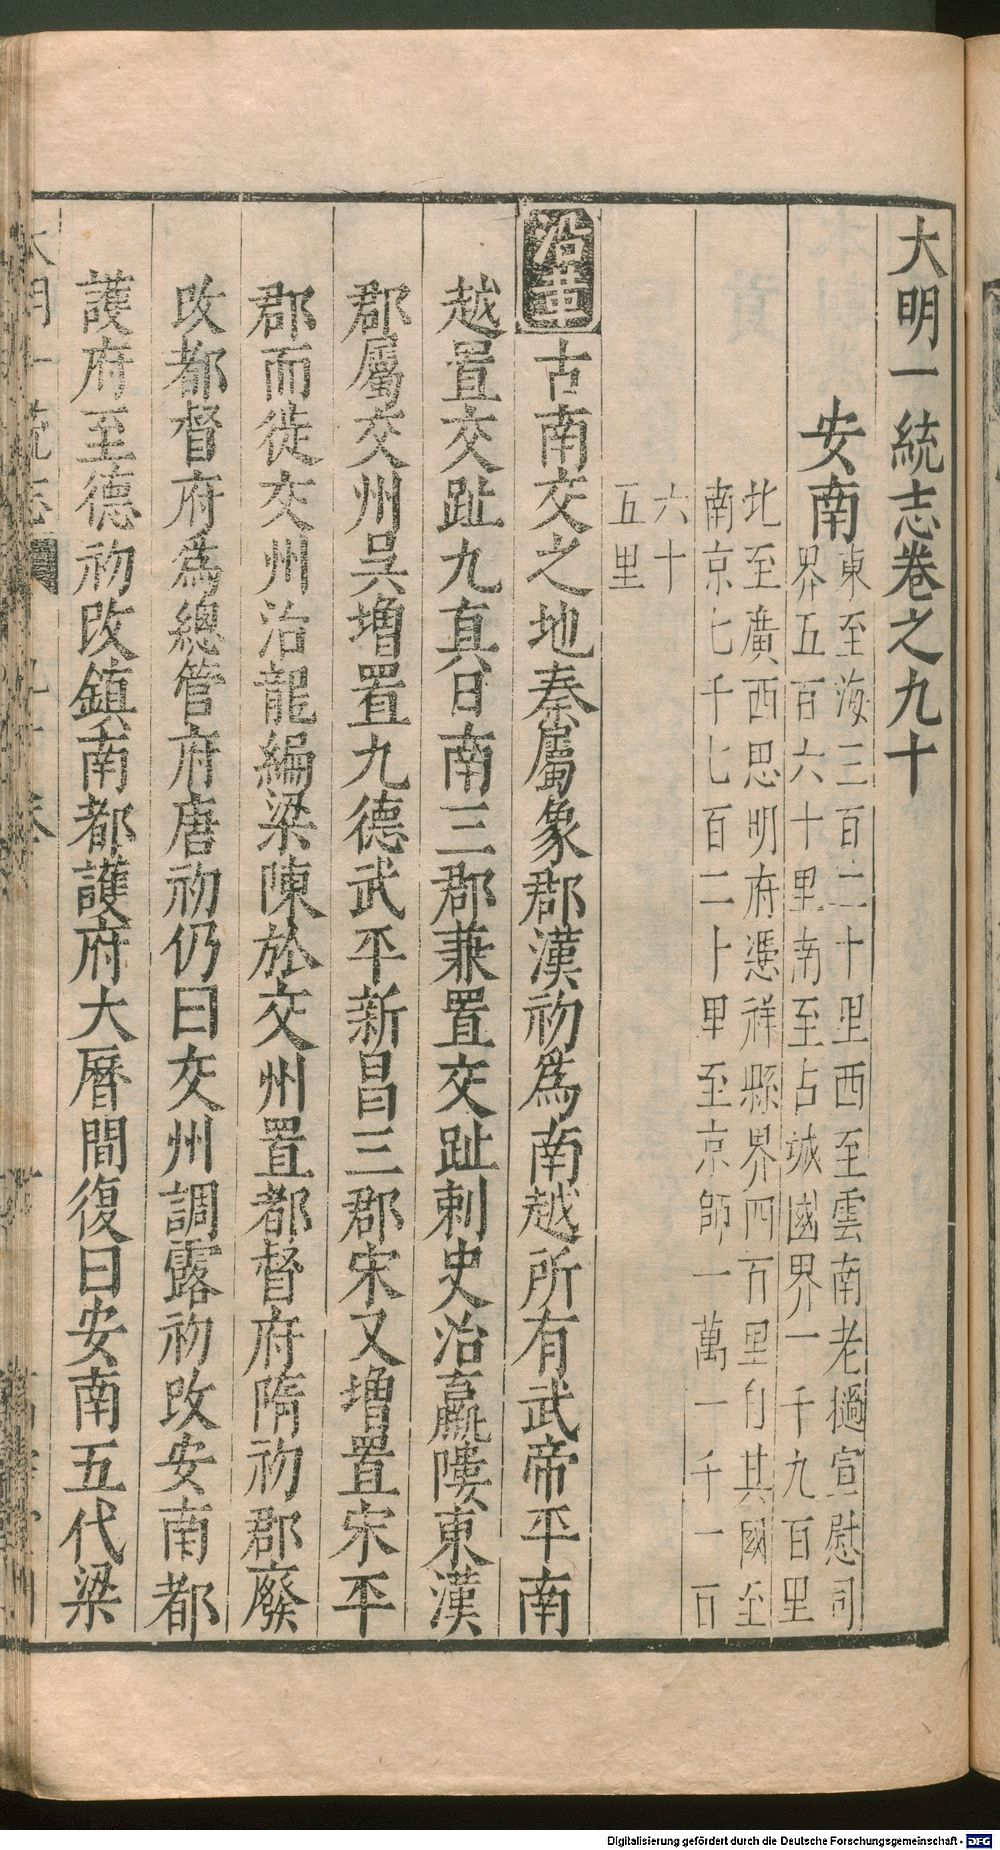 大明一統志卷之九十
安南
東至海三百二十里西至雲南老撾宣慰司
界五百六十里南至占城國界一千九百里
北至廣西思明府憑祥縣界四百里自其國至
南京七千七百二十里至京師一萬一千一百
六十
五里
沿革 古南交之地秦屬象郡漢初爲南越所有武帝平南
越置交趾九真日南三郡兼置交趾刺史治羸𨻻東漢
郡屬交州吳增置九德武平新昌三郡宋又增置宋平
郡而徙交州治龍編梁陳於交州置都督府隋初郡廢
改都督府為總管府唐初仍曰交州調露初改安南都
護府至德初改鎮南都護府大曆間復曰安南五代梁
大明一統志
Digitalisierung gefördert durch die Deutsche Forschungsgemeinschaft - DFG